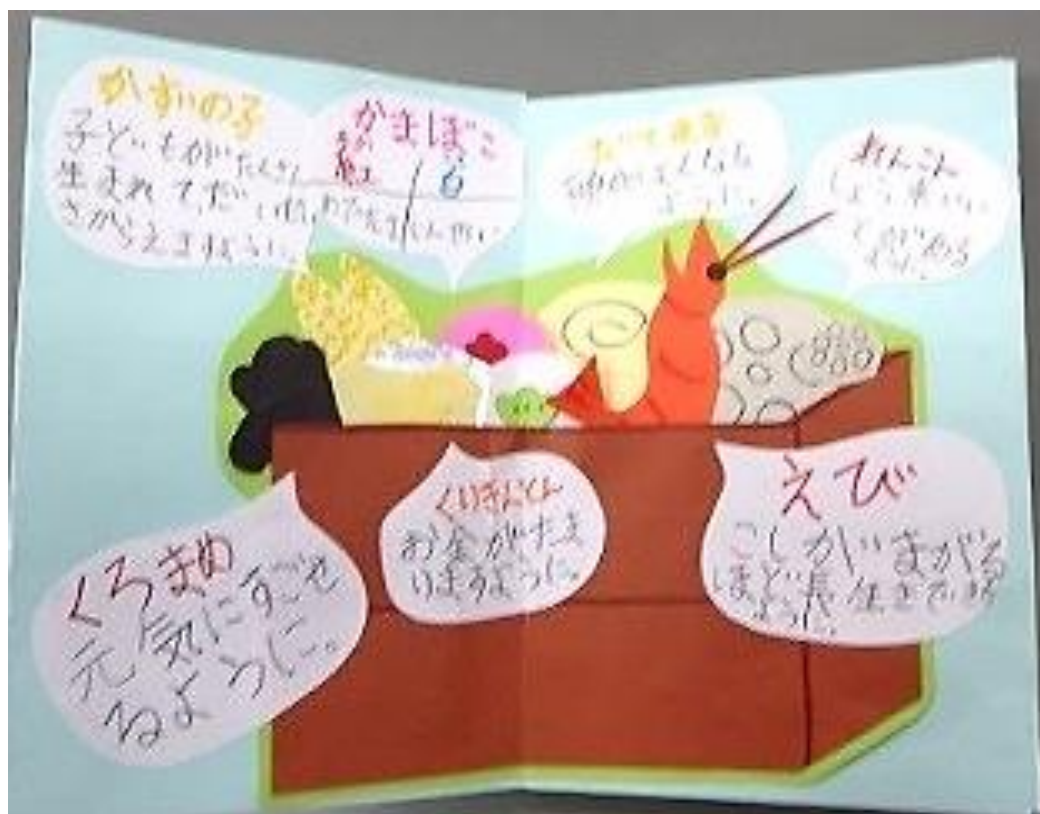 かずの子
子どもがたくさん
生まれて、だいだい
さかえますように。
かまぼこ
紅
白
だて巻き
くなる
ように。
れんこん
しょう来
ように。
くろまめ
元気にすごせ
るように。
くりきんとん
お金がたま
りますように。
えび
こしがまがる
ほど長生きできる
ように。